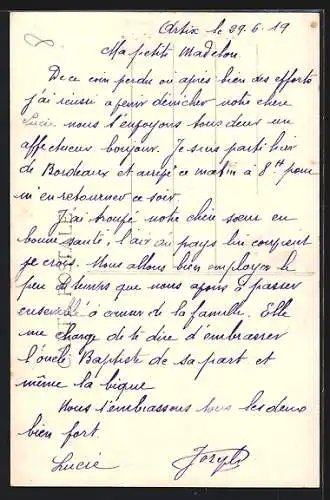 Artix le 29.6.19
Ma petite Madelon.
De ce coin perdu où après bien des efforts
j'ai réussi a finir dénicher notre chere
Lucie nous t'envoyons tous deux un
affectueux bonjour. Je suis parti hier
de Bordeaux et arrivé ce matin à 8H pour
m'en retourner ce soir.
J'ai trouvé notre chère sœur en
bonne santé, l'air du pays lui convient
je crois. Nous allons bien employer le
peu de temps que nous avons à passer
ensemble à causer de la famille. Elle
me charge de te dire d'embrasser
l'oncle Baptiste de sa part et
même la bique
Nous t'embrassons tous les deux
bien fort.
Lucie Joseph